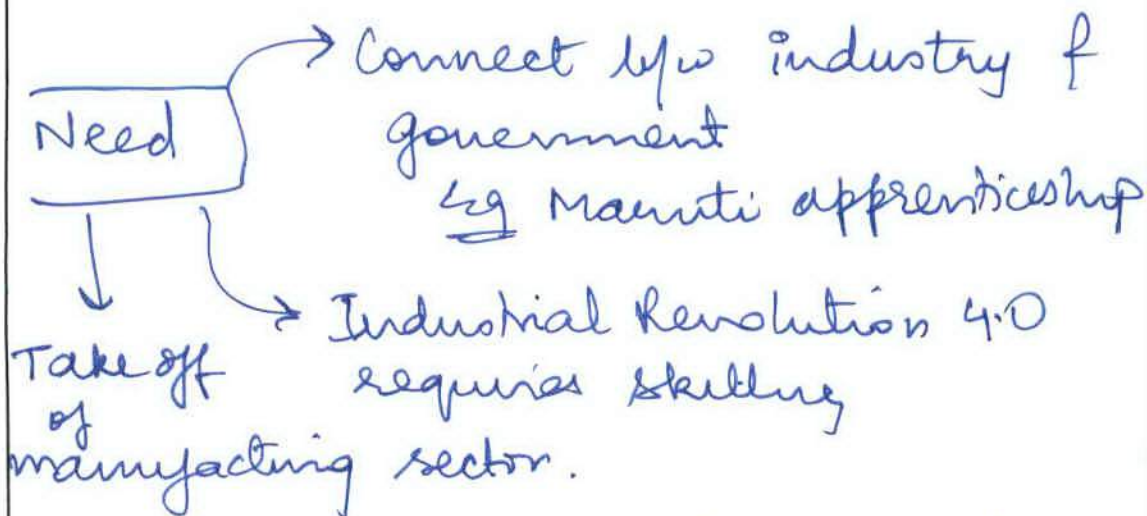 Need
Connect b/w industry &
government
eg Maruti apprenticeship
Industrial Revolution 4.0
requires skilling
Take off
of
manufacturing sector.